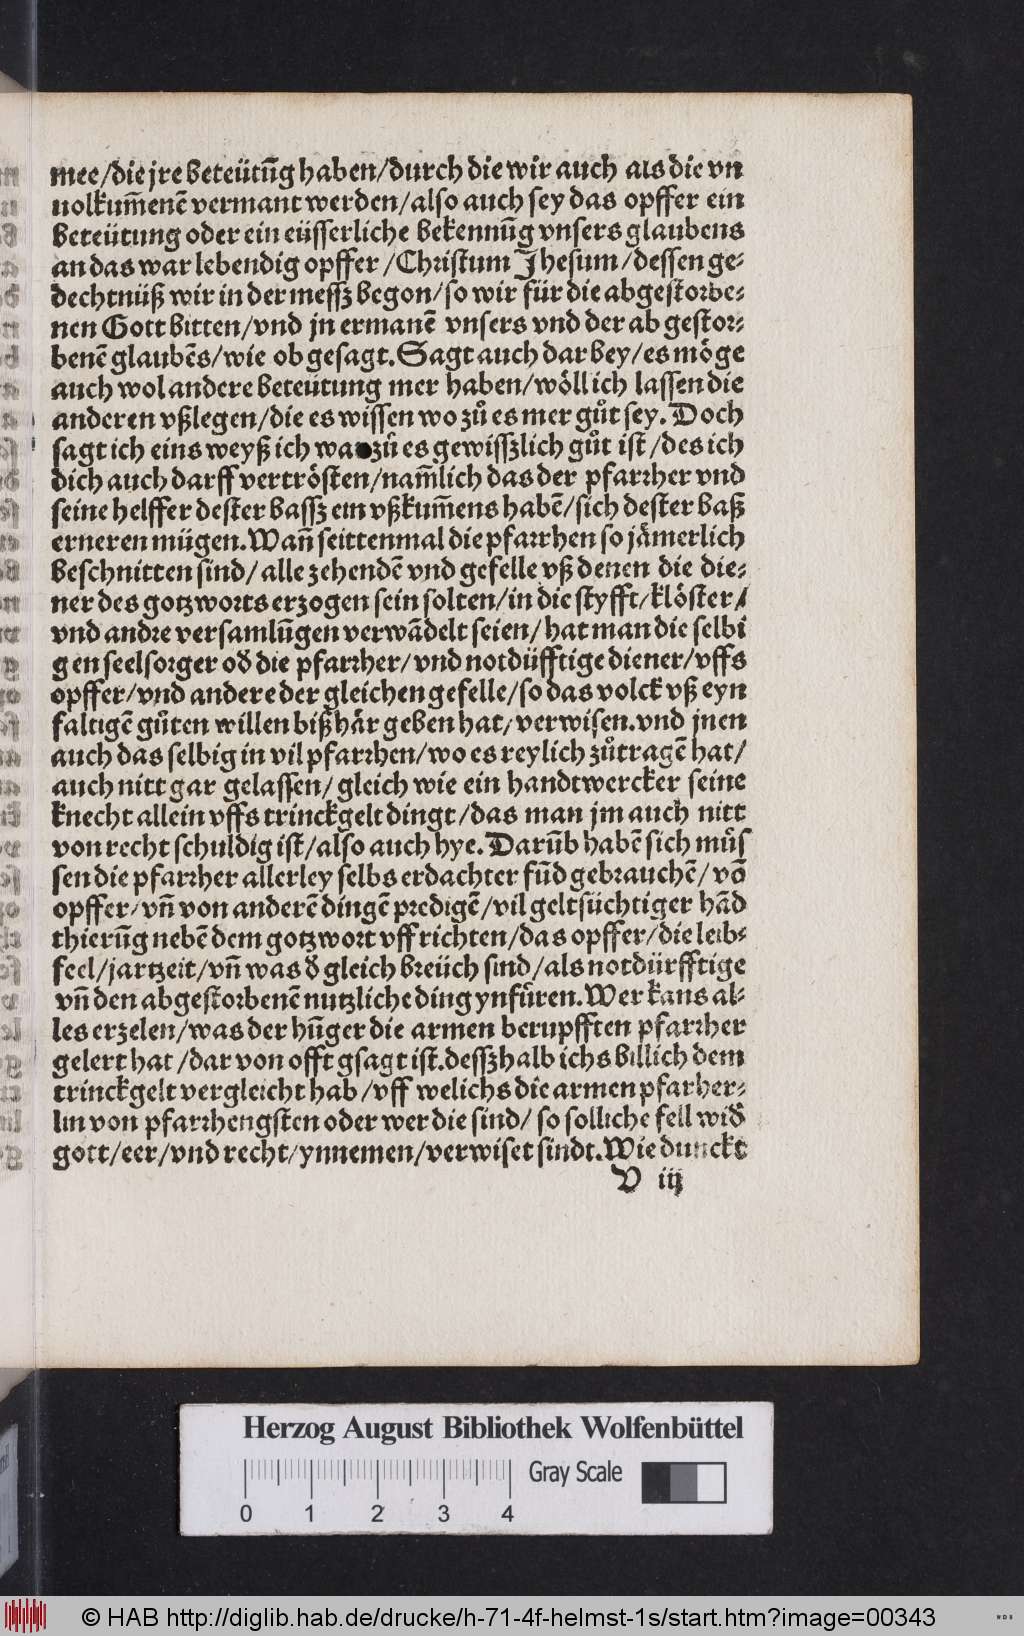 mee/die jre beteütūg haben/durch die wir auch als die vn
uolkum̄enē vermant werden/also auch sey das opffer ein
beteütung oder ein eüsserliche bekennūg vnsers glaubens
an das war lebendig opffer/Christum Jhesum/dessen ge⸗
dechtnüß wir in der messz begon/so wir für die abgestorbe⸗
nen Gott bitten/vnd jn ermanē vnsers vnd der ab gestor⸗
benē glaubēs/wie ob gesagt. Sagt auch dar bey/es möge
auch wol andere beteütung mer haben/wöll ich lassen die
anderen vßlegen/die es wissen wo zů es mer gůt sey. Doch
sagt ich eins weyß ich wa zů es gewisszlich gůt ist/des ich
dich auch darff vertrösten/nam̄lich das der pfarrher vnd
seine helffer dester bassz ein vßkum̄ens habē/sich dester baß
erneren mügen. Wañ seittenmal die pfarrhen so jämerlich
beschnitten sind/alle zehendē vnd gefelle vß denen die die⸗
ner des gotzworts erzogen sein solten/in die styfft/klöster/
vnd andre versamlūgen verwādelt seien/hat man die selbi
gen seelsorger oď die pfarrher/vnd notdüfftige diener/vffs
opffer/vnd andere der gleichen gefelle/so das volck vß eyn
faltigē gůten willen biß här geben hat/verwisen. vnd jnen
auch das selbig in vil pfarrhen/wo es reylich zůtragē hat/
auch nitt gar gelassen/gleich wie ein handtwercker seine
knecht allein vffs trinckgelt dingt/das man jm auch nitt
von recht schuldig ist/also auch hye. Darūb habē sich můs
sen die pfarrher allerley selbs erdachter fūd gebrauchē/vō
opffer/vñ von anderē dingē predigē/vil geltsüchtiger hād
thierūg nebē dem gotzwort vff richten/das opffer/die leib⸗
feel/jartzeit/vñ was ď gleich breüch sind/als notdürfftige
vñ den abgestorbenē nutzliche ding ynfüren. Wer kans al⸗
les erzelen/was der hūger die armen berupfften pfarrher
gelert hat/dar von offt gsagt ist. desszhalb ichs billich dem
trinckgelt vergleicht hab/vff welichs die armen pfarher⸗
lin von pfarrhengsten oder wer die sind/so solliche fell wiď
gott/eer/vnd recht/ynnemen/verwiset sindt. Wie dunckt
V iij
Herzog August Bibliothek Wolfenbüttel
Gray Scale
0 1 2 3 4
© HAB http://diglib.hab.de/drucke/h-71-4f-helmst-1s/start.htm?image=00343